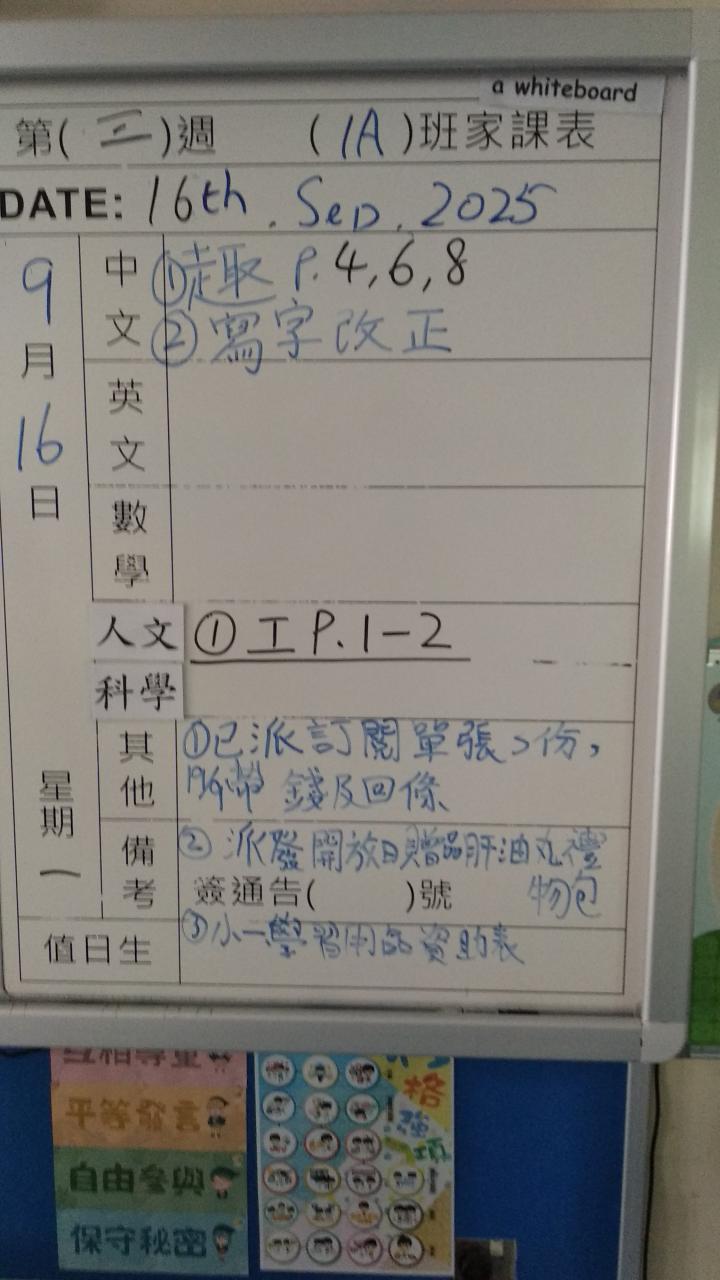 a whiteboard
第(三)週 (1A)班家課表
DATE: 16th. Sep. 2025
9月16日
星期一
中文
①趣 P.4,6,8
②寫字改正
英文
數學
人文
科學
①工 P.1-2
其他
①已派訂閱單張2份,
19/9帶 錢及回條
備考
②派發開放日贈品肝油丸禮物包
簽通告( )號
③小一學習用品資助表
值日生
互相尊重
平等發言
自由參與
保守秘密
格
強項